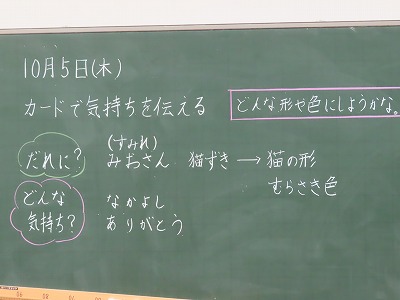 10月5日(木)
カードで気持ちを伝える
どんな形や色にしようかな。
だれに?
(すみれ)
みおさん 猫ずき → 猫の形
むらさき色
どんな
気持ち?
なかよし
ありがとう